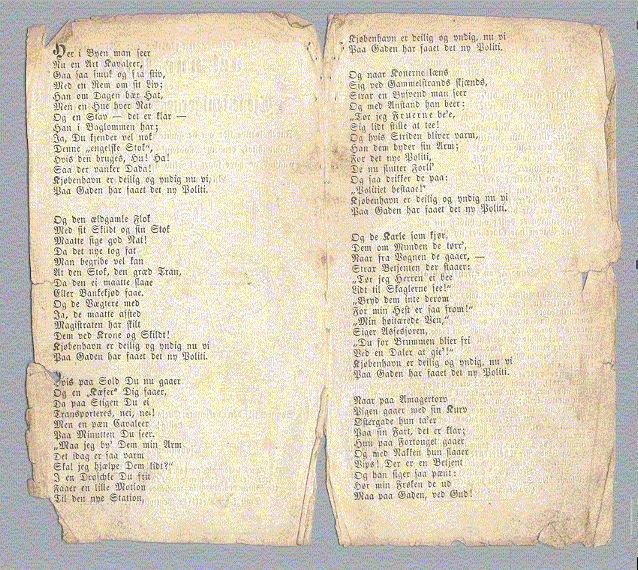 Her i Byen man seer
Nu en Art Kavaleer,
Gaa saa smuk og saa stiv,
Med en Rem om sit Liv;
Han om Dagen bær Hat,
Men en Hue hver Nat
Og en Stav — det er klar —
Han i Baglommen har;
Ja, Du kjender vel nok
Denne „engelske Stok“,
Hvis den bruges, Hu! Ha!
Saa der vanker Dada!
Kjøbenhavn er deilig og yndig nu vi,
Paa Gaden har faaet det ny Politi.
Og den ældgamle Flok
Med sit Skildt og sin Stok
Maatte sige god Nat!
Da det nye tog fat
Man begribe vel kan
At den Stok, den græd Tran,
Da den ei maatte slaae
Eller Bankekjød faae.
Og de Vægtere med
Ja, de maatte afsted
Magistraten har stilt
Dem ved Krone og Skildt!
Kjøbenhavn er deilig og yndig nu vi
Paa Gaden har faaet det ny Politi.
Hvis paa Sold Du nu gaaer
Og en „Kæfer“ Dig faaer,
Da paa Stigen Du ei
Transporteres, nei, nei!
Men en pæn Cavaleer
Paa Minutten Du seer.
„Maa jeg by' Dem min Arm
Det idag er saa varm
Skal jeg hjælpe Dem lidt?“
I en Droschke Du frit
Faaer en lille Motion
Til den nye Station,
Kjøbenhavn er deilig og yndig, nu vi
Paa Gaden har faaet det ny Politi.
Og naar Konerne læns
Sig ved Gammelstrands skjænds,
Svar en Bysvend man seer
Og med Anstand han beer:
„Tør jeg Fruerne be'e,
Sig lidt stille at tee!
Og hvis Striden bliver varm,
Han dem byder sin Arm;
For det nye Politi,
De nu slutter Forli'
Og saa drikker de paa:
„Politiet bestaae!“
Kjøbenhavn er deilig og yndig, nu vi
Paa Gaden har faaet det ny Politi.
Og de Karle som kjør,
Dem om Munden de tørr',
Naar fra Vognen de gaaer, —
Svar Betjenten der staaer:
„Tør jeg Herren ei bee
Lidt til Skaglerne see!“
„Bryd dem inte derom
For min Hest er saa from!“
„Min høitærede Ven,“
Siger Assessoren,
„Du for Brummen blier fri
Ved en Daler at gie'!“
Kjøbenhavn er deilig og yndig, nu vi
Paa Gaden har faaet det ny Politi.
Naar paa Amagertorv
Pigen gaaer med sin Kurv
Østergade hun ta'er
Paa sin Fart, det er klar;
Hun paa Fortouget gaaer
Og med Nakken hun slaaer
Vips! Der er en Betjent
Og han siger saa pænt:
Hør min Frøken de ud
Maa paa Gaden, ved Gud!